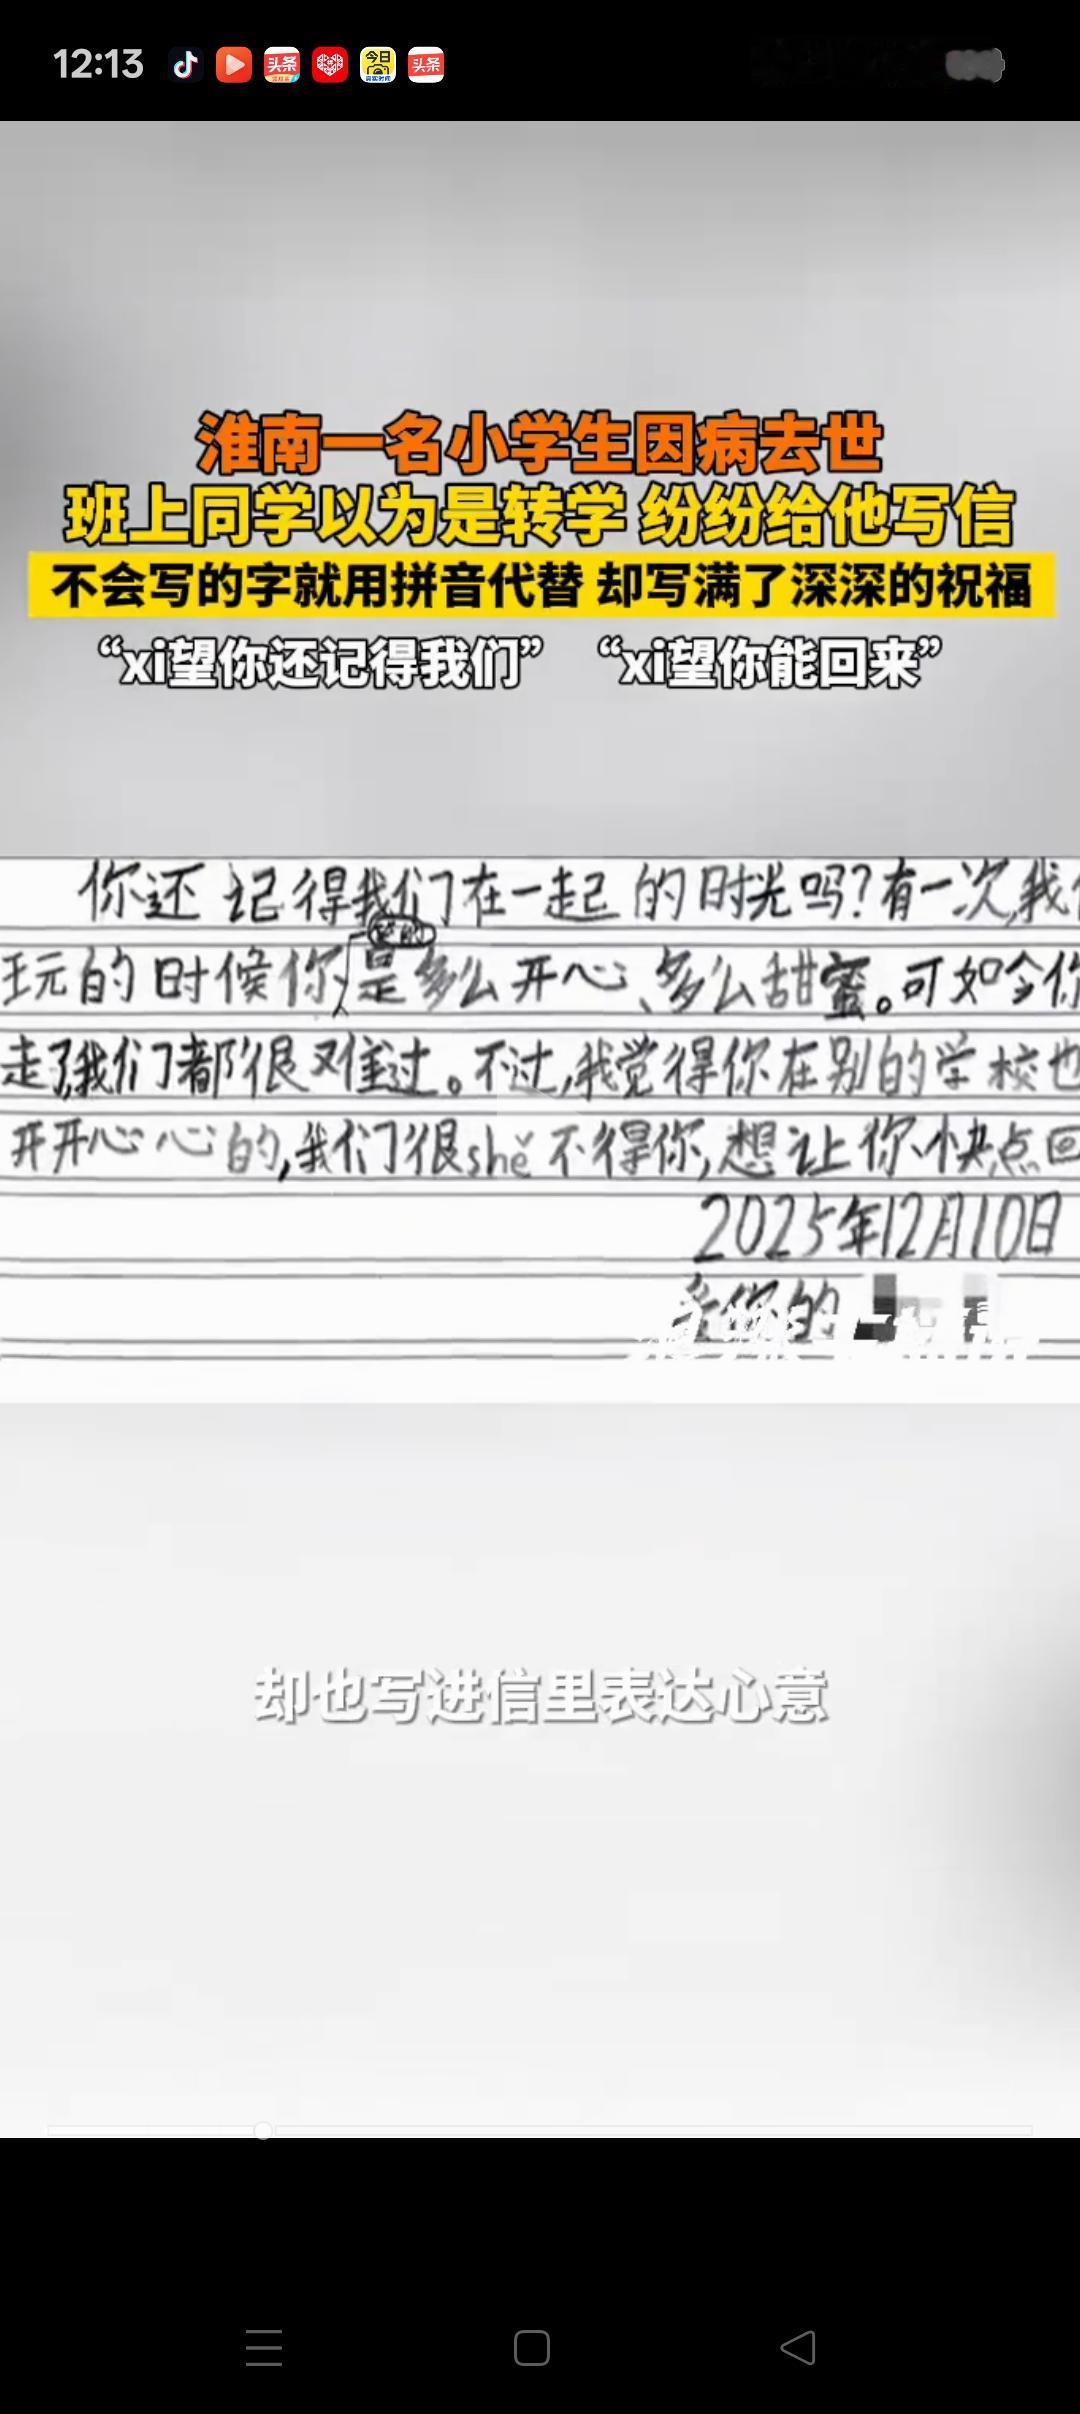 12:13
头条
今日
头条
淮南一名小学生因病去世
班上同学以为是转学 纷纷给他写信
不会写的字就用拼音代替 却写满了深深的祝福
“xi望你还记得我们” “xi望你能回来”
你还记得我们在一起的时光吗?有一次,我
玩的时候你是多么开心、多么甜蜜。可如今你
走了,我们都很难过。不过,我觉得你在别的学校也
开开心心的,我们很shě不得你,想让你快点回
2025年12月10日
你的
却也写进信里表达心意